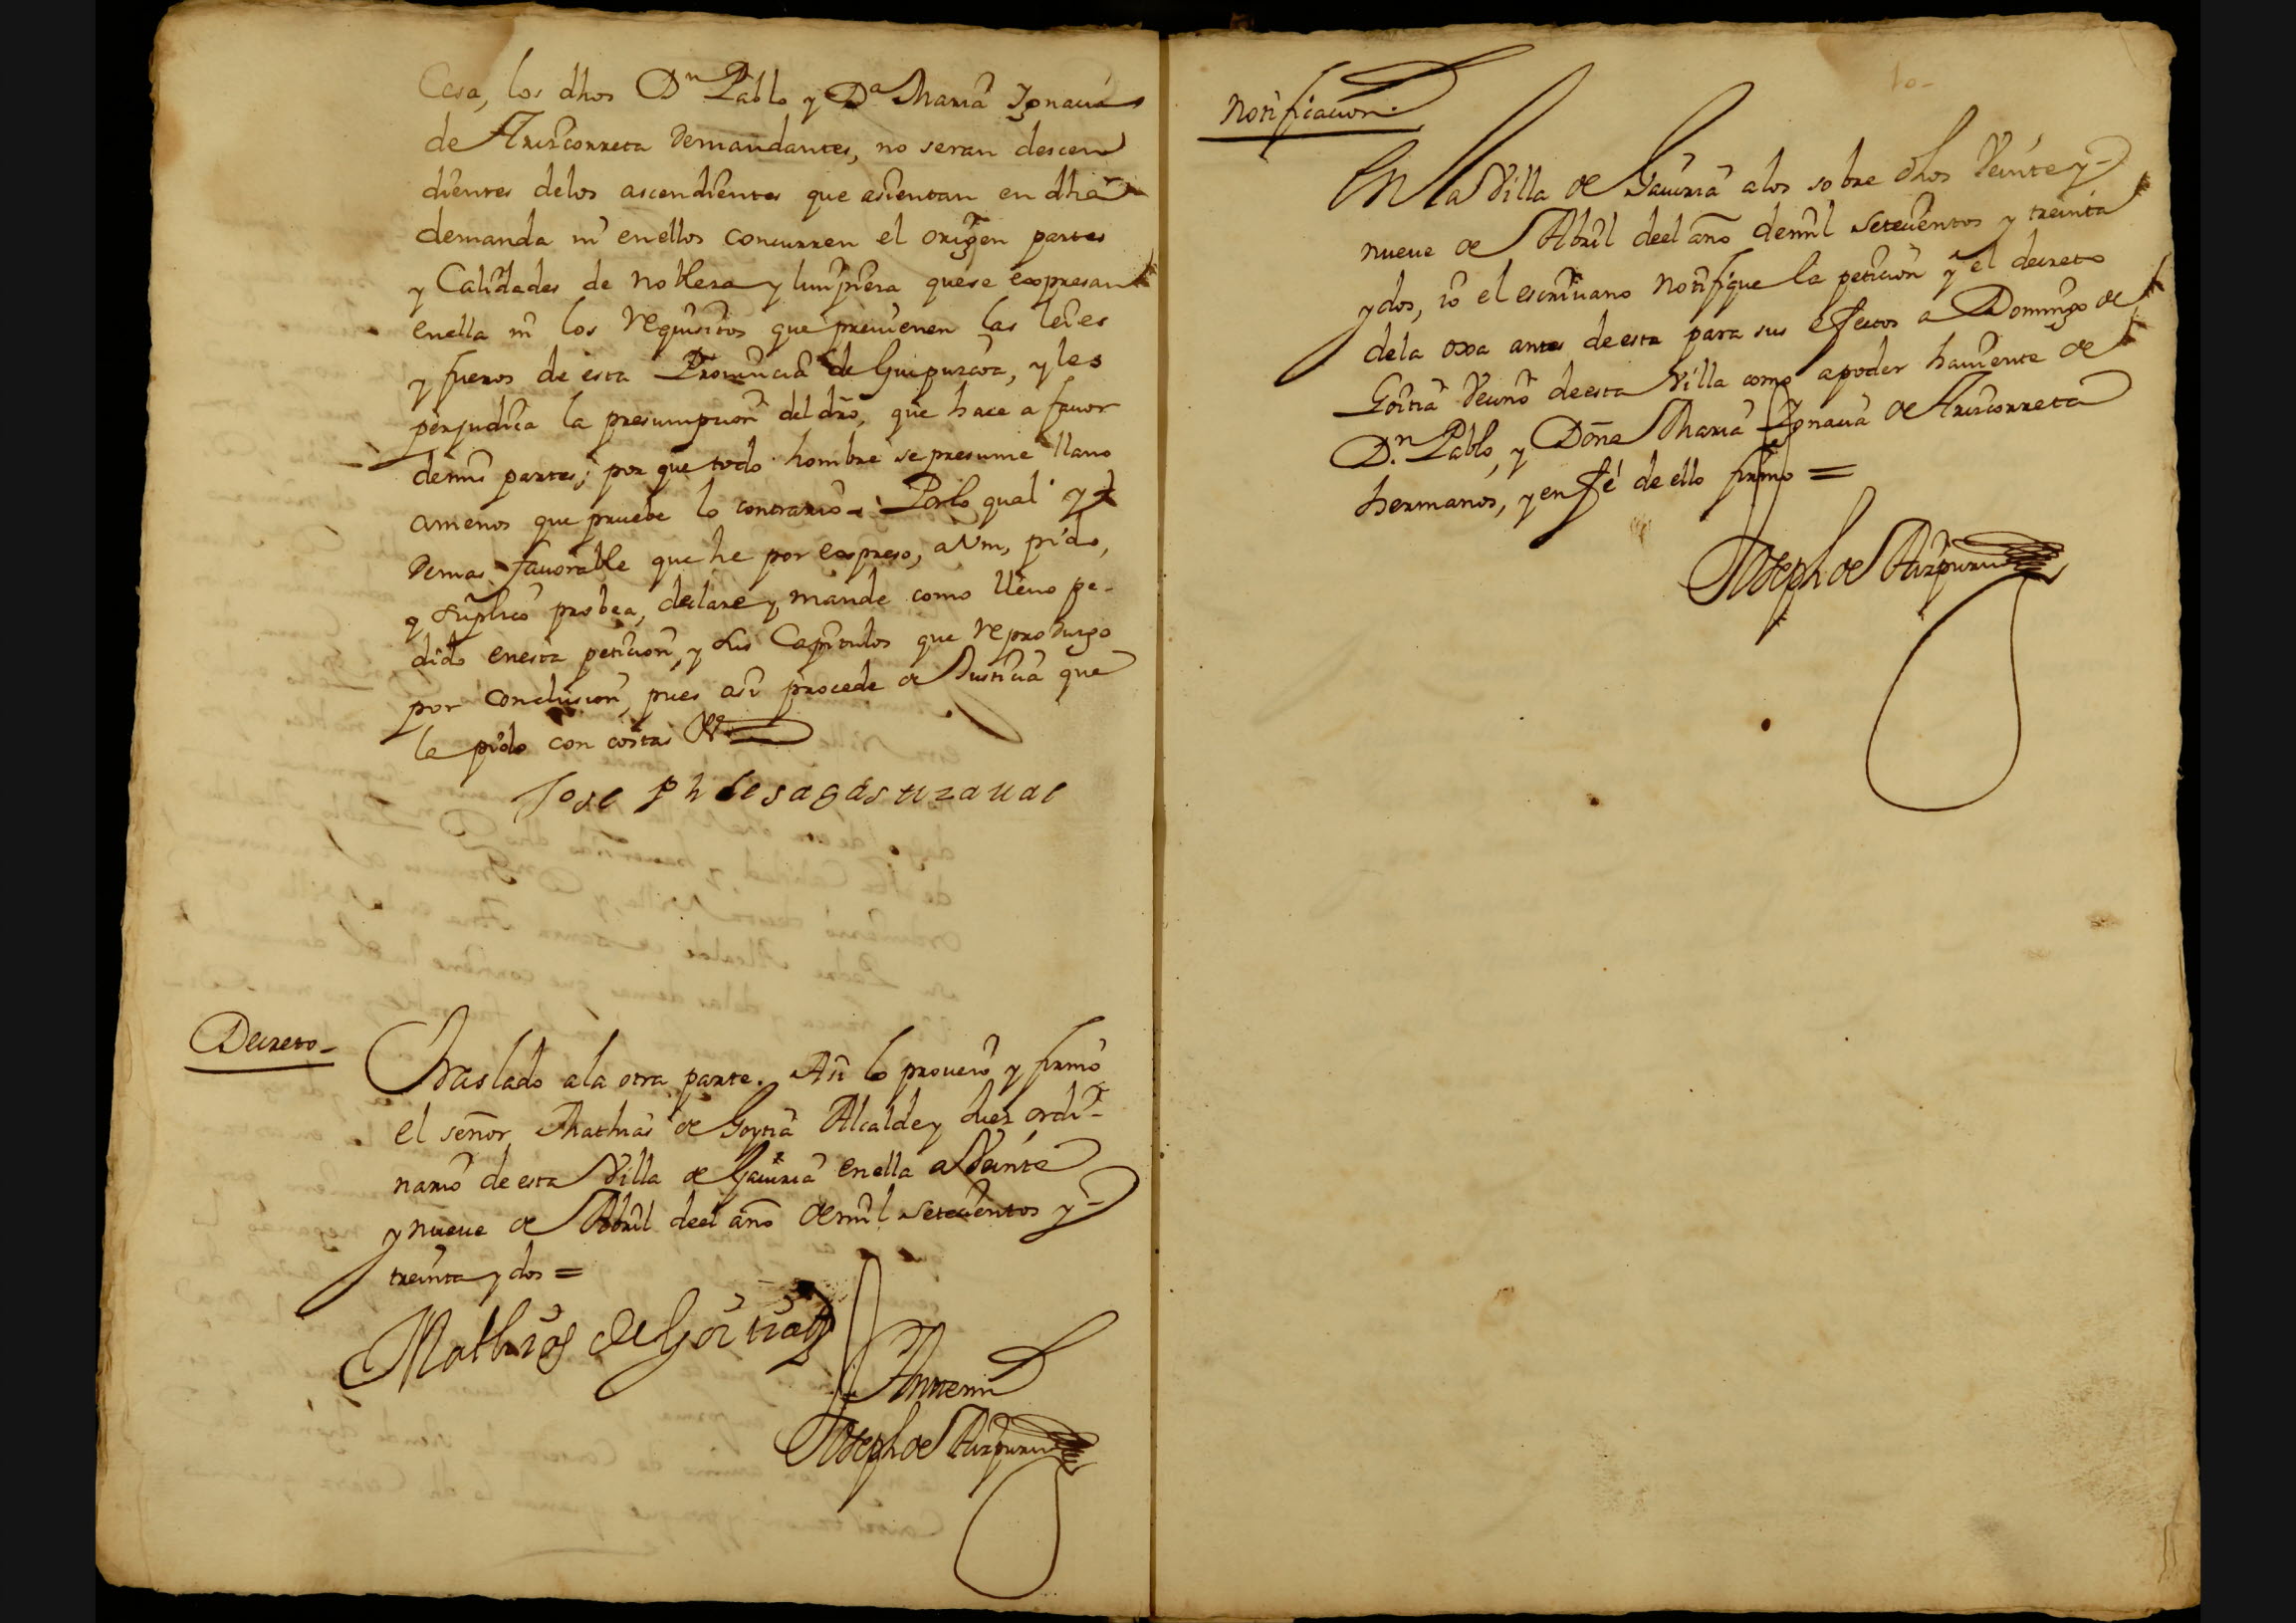 Casa, los dhos Dn Pablo y Da Maria Ignacia
de Ariscorreta Demandantes, no seran descen
dientes delos ascendientes que asientan en dha
demanda ni enellos concurren el origen partes
y Calidades de nobleza y limpieza quese expresan
enella ni los requisitos que preuienen las leies
y fueros de esta Prouincia de Guipuzcoa, y les
perjudica la presumpcion del dro, que hace a fauor
demis partes; por que todo hombre se presume llano
amenos que pruebe lo contrario. Porlo qual y
Demas fauorable que he por expreso, a Vm, pido,
y suplico probea, declare y mande como lleuo pe-
dido enesta peticion, y sus Capitulos que reproduzgo
por conclusion, pues asi procede de Justicia que
la pido con costas &a
Joseph de sagastizaual
Decreto-
Traslado ala otra parte. Asi lo proueio y firmo
el señor Mathias de Goytia Alcalde y Juez ordi-
nario de esta Villa de Gauiria enella a Veinte
y nueue de Abril deel año demil setecientos y
treinta y dos =
Mathias de Goitia
Antemi
Joseph de Aizpuru
Notificacion.
10-
En la Villa de Gauiria alos sobre dhos Veinte y
nueue de Abril deel año demil setecientos y treinta
y dos, io el escriuano notifique la peticion y el decreto
dela oxa antes de esta para sus efectos a Domingo de
Goitia Vecino de esta Villa como apoder hauiente de
Dn. Pablo, y Doña Maria Ignacia de Ariscorreta
hermanos, y en fé de ello firmo =
Joseph de Aizpuru